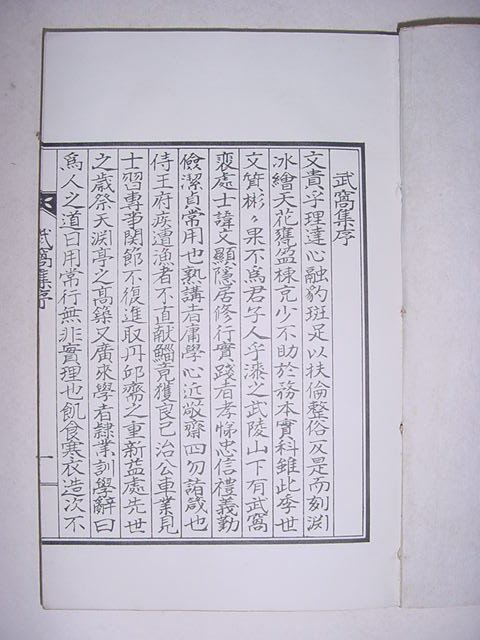 武窩集序
文貴乎理達心融豹斑足以扶倫整俗反是而刻渊
冰繪天花甕盆棟充少不助於務本實科雖此季世
文質彬々果不爲君子人乎漆之武陵山下有武窩
裵處士諱文顯隱居修行實踐者孝悌忠信禮義勤
儉潔自常用也熟講者庸學心近敬齋四勿諸箴也
侍王府疾遭漁者不直献鯔竟獲良已治公車業見
士習專弟関節不復進取丹邱齋之重新益處先世
之歲祭天淵亭之髙築又廣來學者隷業訓學辭曰
爲人之道日用常行無非實理也飢食寒衣造次不
武窩集序
一